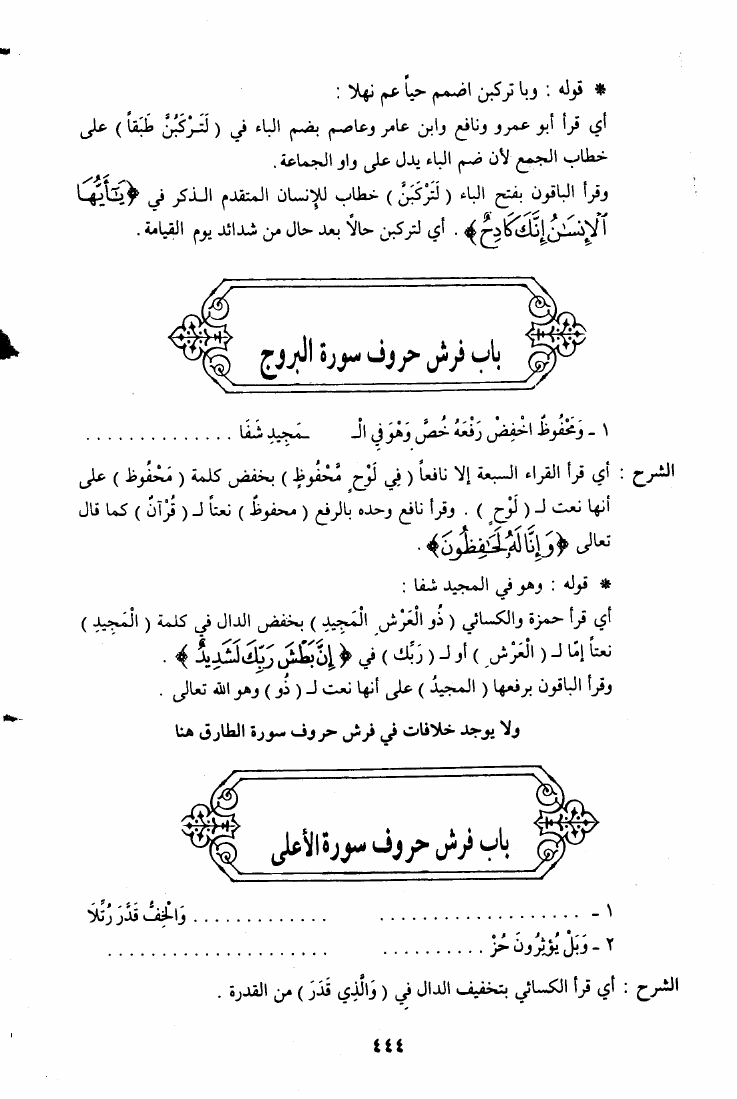 * قوله : وبا تركبن اضمم حياً عم نهلا :
أي قرأ أبو عمرو ونافع وابن عامر وعاصم بضم الباء في ( لَتَرْكَبُنَّ طَبَقاً ) على
خطاب الجمع لأن ضم الباء يدل على واو الجماعة .
وقرأ الباقون بفتح الباء ( لَتَرْكَبَنَّ ) خطاب للإنسان المتقدم الذكر في ﴿يَـٰٓأَيُّهَا
ٱلْإِنسَـٰنُ إِنَّكَ كَادِحٌ﴾ . أي لتركبن حالاً بعد حال من شدائد يوم القيامة .
باب فرش حروف سورة البروج
١ - وَمَحْفُوظٌ اخْفِضْ رَفْعَهُ خُصَّ وَهْوَ فِي الْـ ـمَجِيدِ شَفَا . . . . . . . . . . . . . .
الشرح : أي قرأ القراء السبعة إلا نافعاً ( فِي لَوْحٍ مَّحْفُوظٍ ) بخفض كلمة ( مَحْفُوظ ) على
أنها نعت لـ ( لَوْحٍ ) . وقرأ نافع وحده بالرفع ( محفوظٌ ) نعتاً لـ ( قُرْآنٌ ) كما قال
تعالى ﴿وَإِنَّا لَهُۥ لَحَـٰفِظُونَ﴾ .
* قوله : وهو في المجيد شفا :
أي قرأ حمزة والكسائي ( ذُو الْعَرْشِ الْمَجِيدِ ) بخفض الدال في كلمة ( الْمَجِيدِ )
نعتاً إمّا لـ ( الْعَرْشِ ) أو لـ ( رَبِّك ) في ﴿ إِنَّ بَطْشَ رَبِّكَ لَشَدِيدٌ ﴾ .
وقرأ الباقون برفعها ( المجيدُ ) على أنها نعت لـ ( ذُو ) وهو الله تعالى .
ولا يوجد خلافات في فرش حروف سورة الطارق هنا
باب فرش حروف سورة الأعلى
١ - . . . . . . . . . . . . . . . . . . . . . . . . . . . . . . . . وَالْخِفُّ قَدَّرَ رُتِّلَا
٢ - وَبَلْ يُؤْثِرُونَ حُزْ . . . . . . . . . . . . . . . . . . . . . . . . . . . .
الشرح : أي قرأ الكسائي بتخفيف الدال في ( وَالَّذِي قَدَرَ ) من القدرة .
٤٤٤